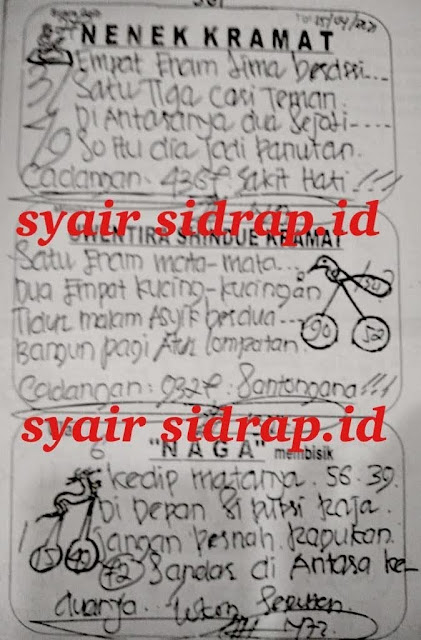 NENEK KRAMAT
Empat Enam Lima berdiri...
Satu Tiga cari Teman.
Di Antaranya dua Sejati----
So Itu dia Jadi Panutan.
Cadangan. Sakit Hati !!!
syair sidrap.id
UWENTIRA SHINDUE KRAMAT
Satu Enam mata-mata...
Dua Empat kucing-kucingan
Tidur malam Asyik berdua---
Bangun pagi Atur lompatan.
90 52
Cadangan : Santongana !!!
syair sidrap.id
6 "NAGA" membisik
kedip matanya. 56.39.
Di Depan Si putri Raja.
Jangan pernah
72 di Antara ke-
duanya.